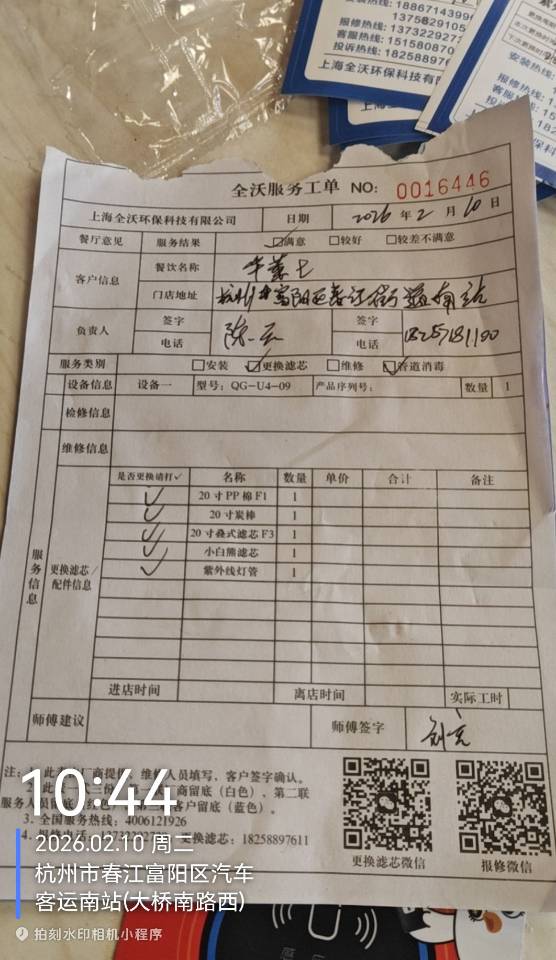 安装热线: 18867143996
1375829105
报修热线: 1373229273
客服热线: 151580870
投诉热线: 1825889
上海全沃环保科技有限
全沃服务工单 NO: 0016446
上海全沃环保科技有限公司 日期 2026 年 2 月 10 日
餐厅意见 服务结果 ☑满意 □较好 □较差不满意
客户信息 餐饮名称 华莱士
门店地址 杭州市富阳区春江街道南站
负责人 签字 陈 签字
电话 电话 18257181100
服务类别 □安装 ☑更换滤芯 □维修 ☑管道消毒
设备信息 设备一 型号: QG-U4-09 产品序列号: 数量 1
检修信息
维修信息
服务信息
更换滤芯/配件信息
是否更换请打✓ 名称 数量 单价 合计 备注
✓ 20寸PP棉F1 1
✓ 20寸炭棒 1
✓ 20寸叠式滤芯F3 1
✓ 小白熊滤芯 1
✓ 紫外线灯管 1
进店时间 离店时间 实际工时
师傅建议 师傅签字
注: 1. 此 厂商提供, 维修人员填写, 客户签字确认。
商留底(白色)、第二联
服务人员留底 客户留底(蓝色)。
3. 全国服务热线: 4006121926
4. 更换滤芯: 18258897611
更换滤芯微信 报修微信
10:44
2026.02.10 周二
杭州市春江富阳区汽车
客运南站(大桥南路西)
拍刻水印相机小程序